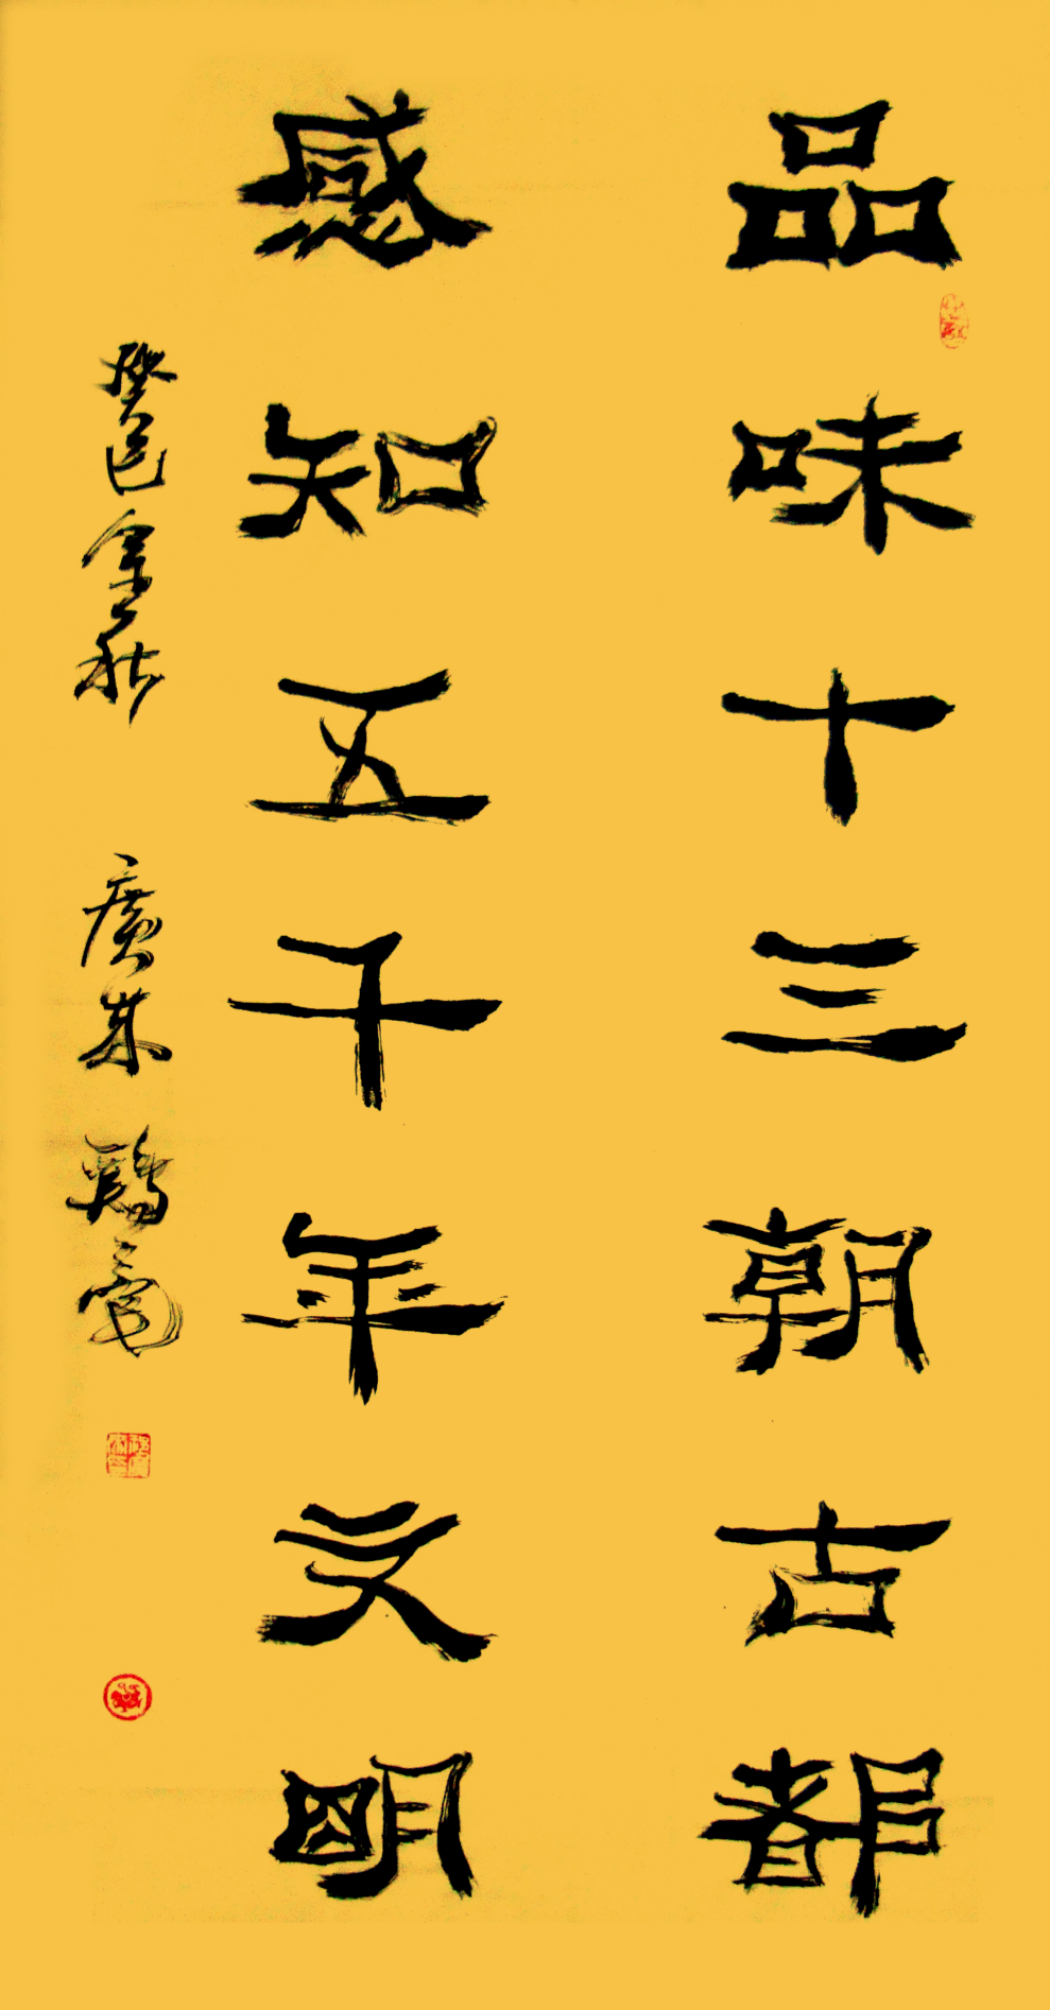 品味十三朝古都
感知五千年文明
癸巳金秋 廣來 鷄毫